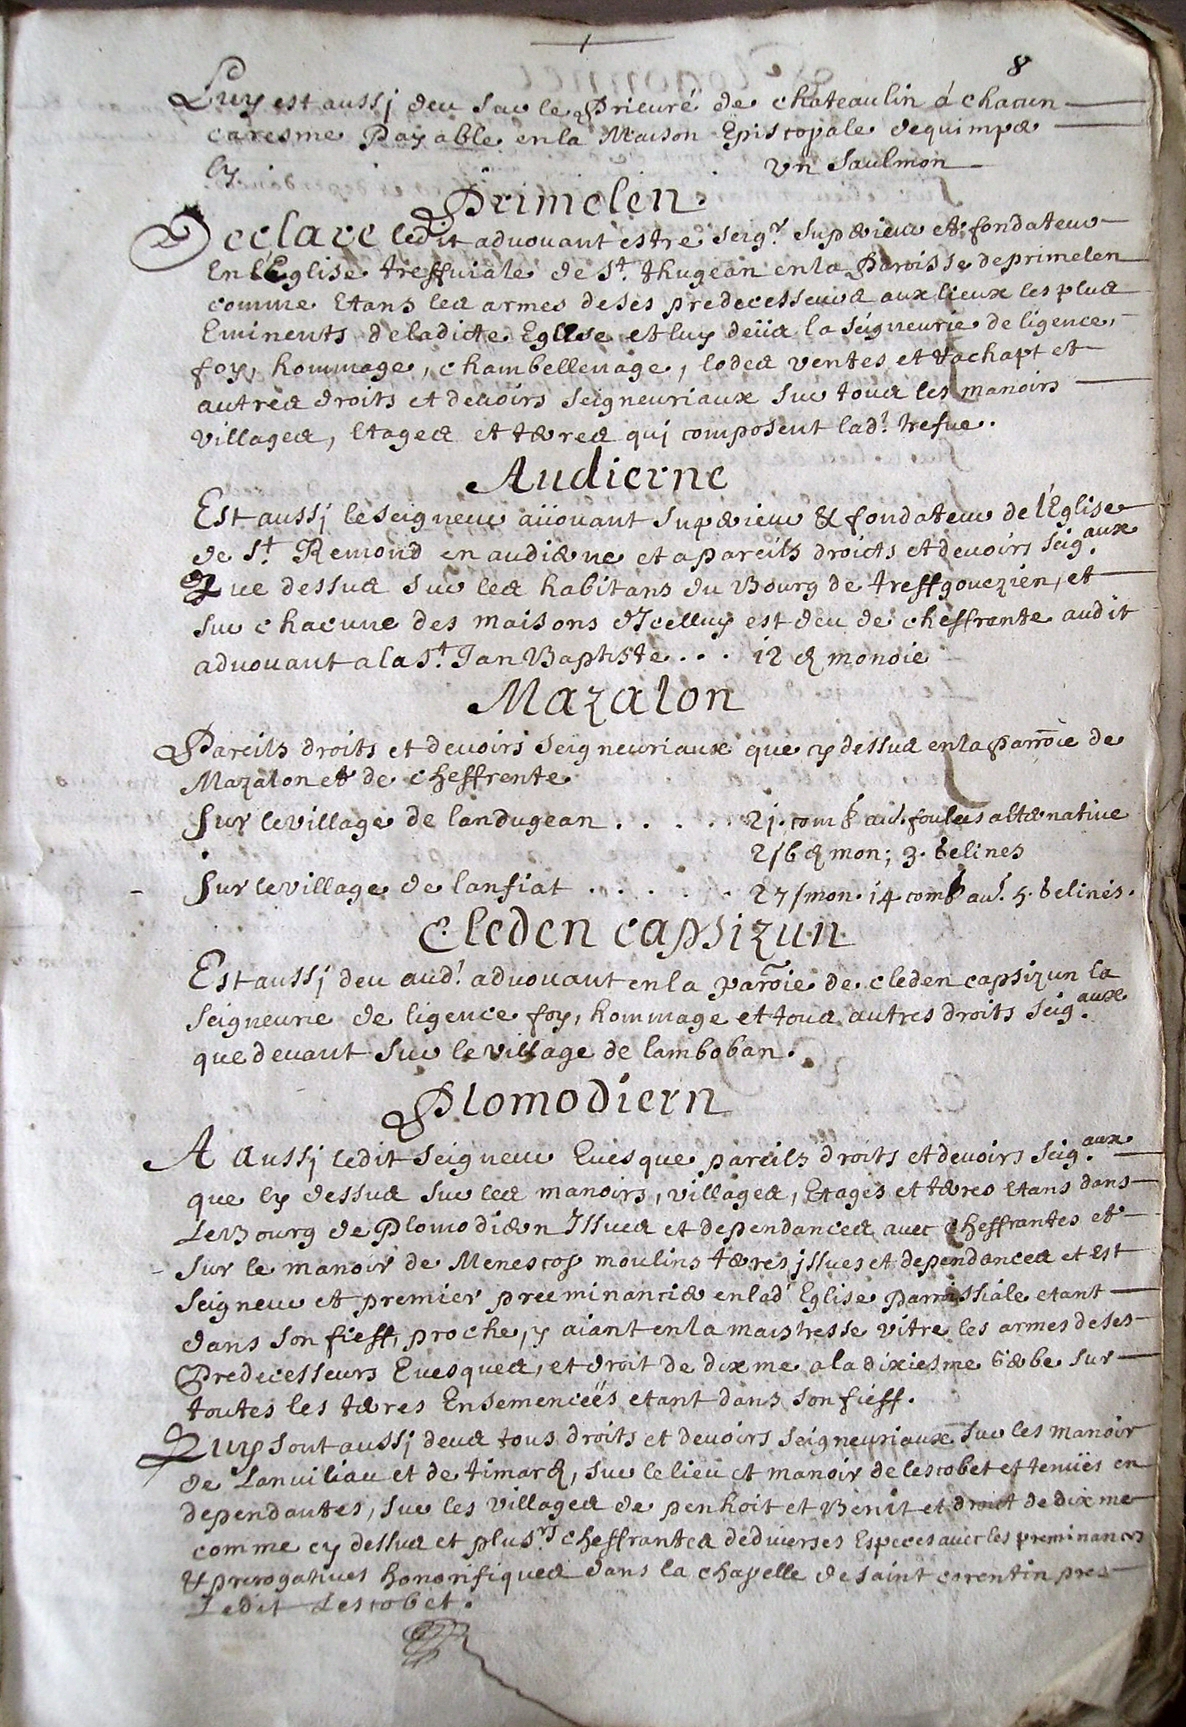 8
Luy est aussj deu sur le Prieuré de chateaulin á chacun
caresme Payable en la Maison Episcopale de quimper
Un saulmon
Primelen.
Declare ledit advouant estre seigr. superieur et fondateur
En l'Eglise treffuiale de St. thugean en la Paroisse de primelen
comme Etans les armes de ses predecesseurs aux lieux les plus
Eminents de ladicte Eglise et luy deüs la seigneurie de ligence,
foy, hommage, chambellenage, lodes ventes et rachapt et
autres droits et deuoirs seigneuriaux sur tous les manoirs
villages, Etages et terres quj composent lad. trefue.
Audierne
Est aussj le seigneur aüouant superieur & fondateur de l'Eglise
de St. Remond en audierne et a pareils droicts et deuoirs seig.aux
Que dessus sur les habitans du Bourg de treffgouezien, et
sur chacune des maisons d'Icelluy est deu de cheffrente audit
advouant a la St. Jan Baptiste . . . 12 d monoie
Mazalon
Pareils droits et deuoirs seigneuriaux que cy dessus en la parroie de
Mazalon et de cheffrente
Sur le village de landugean . . . . . 21. comb au. foules alternative
2 s 6 d mon; 3. belines
Sur le village de lanfiat . . . . . . 27 s mon. 14 comb au. 5. belines.
Cleden capsizun
Est aussj deu aud. advouant en la paroie de cleden capsizun la
seigneurie de ligence foy, hommage et tous autres droits seig.aux
que deuant sur le village de lamboban.
Plomodiern
A aussj ledit seigneur Euesque pareils droits et deuoirs seig.aux
que cy dessus sur les manoirs, villages, Etages et terres Etans dans
Le Bourg de Plomodiern Issues et dependances avec cheffrantes et
sur le manoir de Menescop moulins terres jssues et dependances et est
seigneur et premier preeminancier en lad Eglise parroissiale etant
dans son fieff, proche, y aiant en la maistresse vitre les armes de ses
Predecesseurs Euesques, et droit de dixme a la dixiesme Gerbe sur
toutes les terres Ensemenceës etant dans son fieff.
Luy sont aussj deus tous droits et deuoirs seigneuriaux sur les manoir
de Lanuiliau et de timarq, sur le lieu et manoir de lescobet et tenuës en
dependantes, sur les villages de penhoit et Benit et droit de dixme
comme cy dessus et plus.rs cheffrantes de diuerses Especes auec les preminances
& prerogatiues honorifiques dans la chapelle de saint corentin pres
Ledit Lescobet.